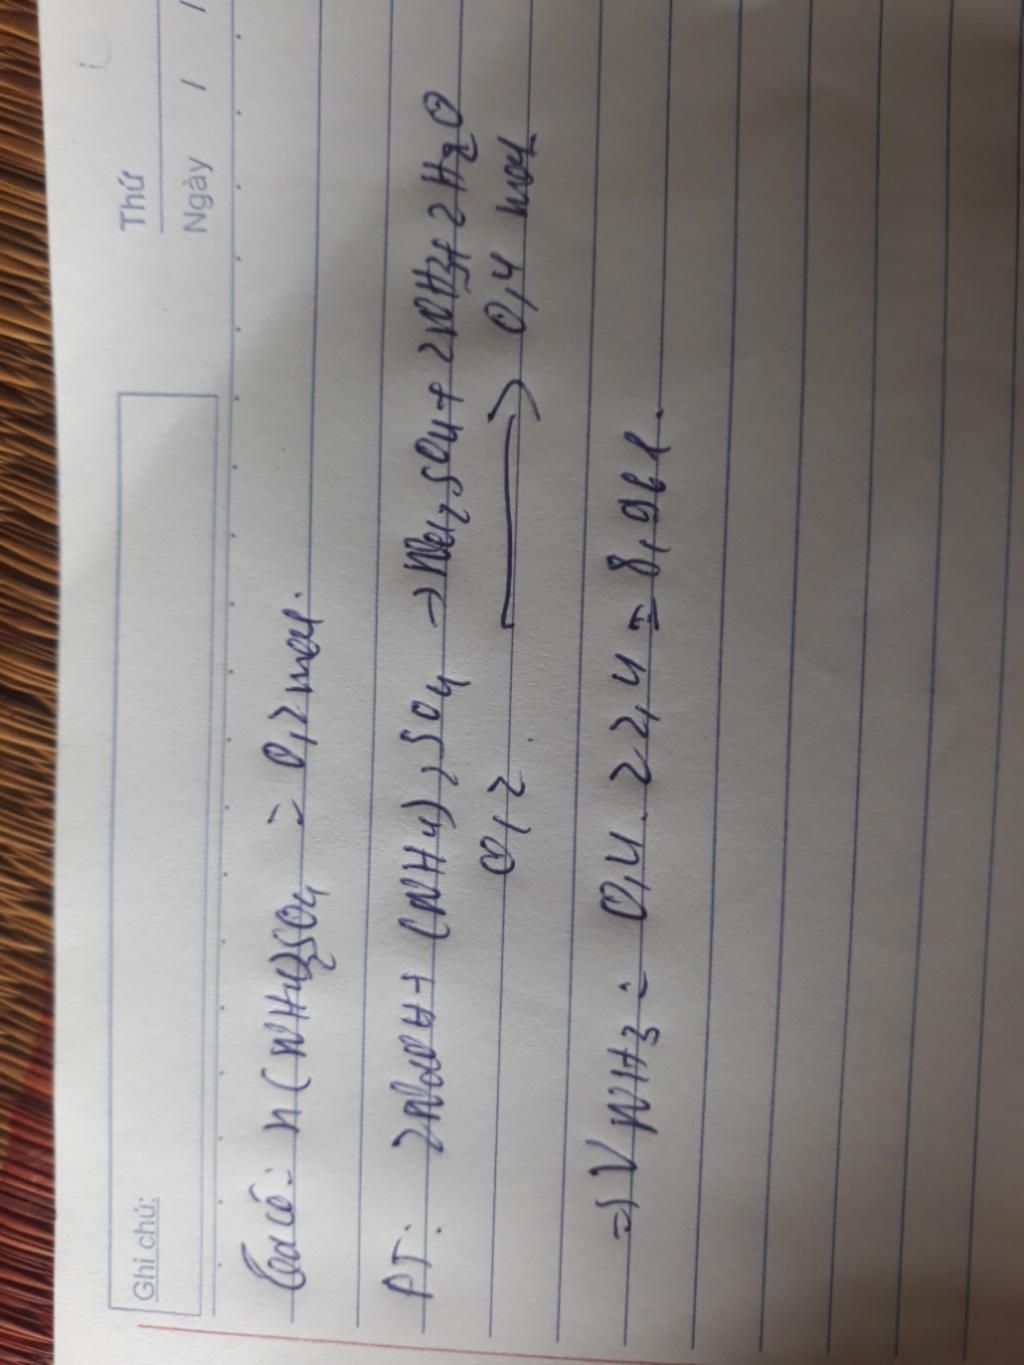 Thứ
Ngày / /
Ghi chú:
Ta có: n(NH4)2SO4 = 0,2 mol.
PT: 2NaOH + (NH4)2SO4 → Na2SO4 + 2NH3 + 2H2O
0,2 → 0,4 mol
=> VNH3 = 0,4 . 22,4 = 8,96l.